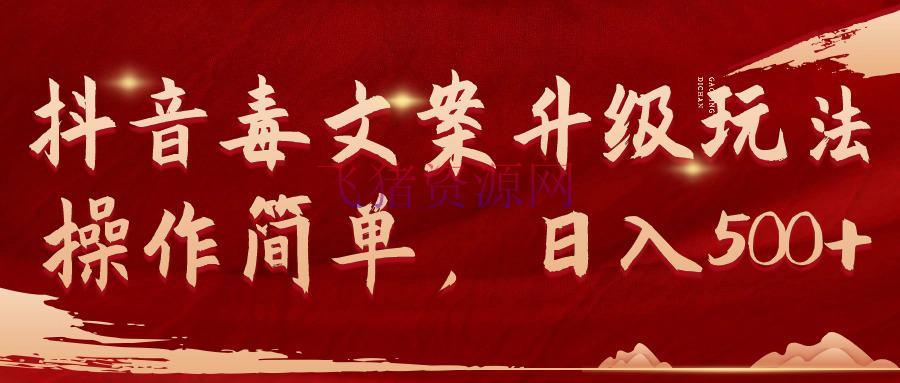 抖音毒文案升级玩法
GAODANG
DICHAN
飞猪资源网
操作简单，日入500+